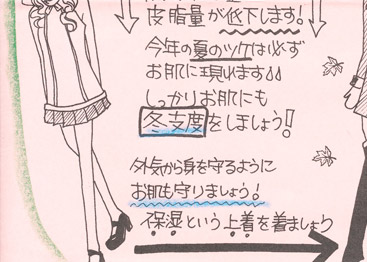 皮脂量が低下します!
今年の夏のツケは必ず
お肌に現れます!!
しっかりお肌にも
冬支度をしましょう!
外気から身を守るように
お肌も守りましょう!
保湿という上着を着ましょう